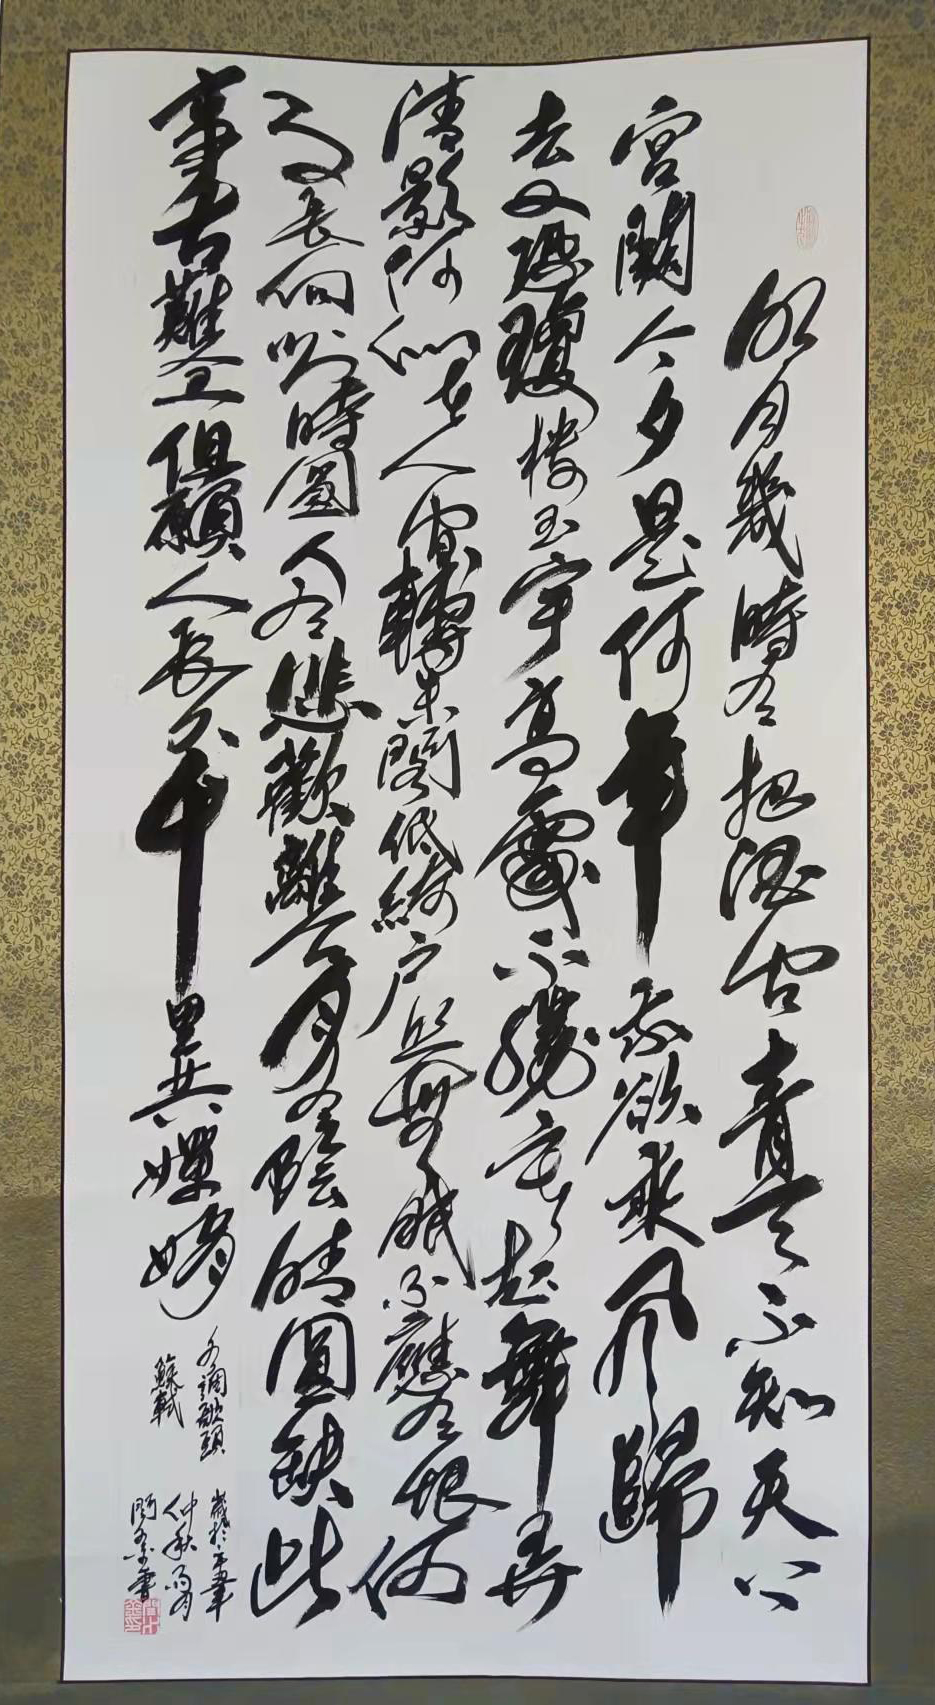 明月幾時有把酒问青天不知天上
宮闕今夕是何年我欲乘風歸
去又恐瓊樓玉宇高處不勝寒起舞弄
清影何似在人間轉朱閣低綺戶照無眠不應有恨何
事長向別時圓人有悲歡離合月有陰晴圓缺此
事古難全但願人長久千里共嬋娟
水調歌頭
蘇軾
歲於
仲秋
書